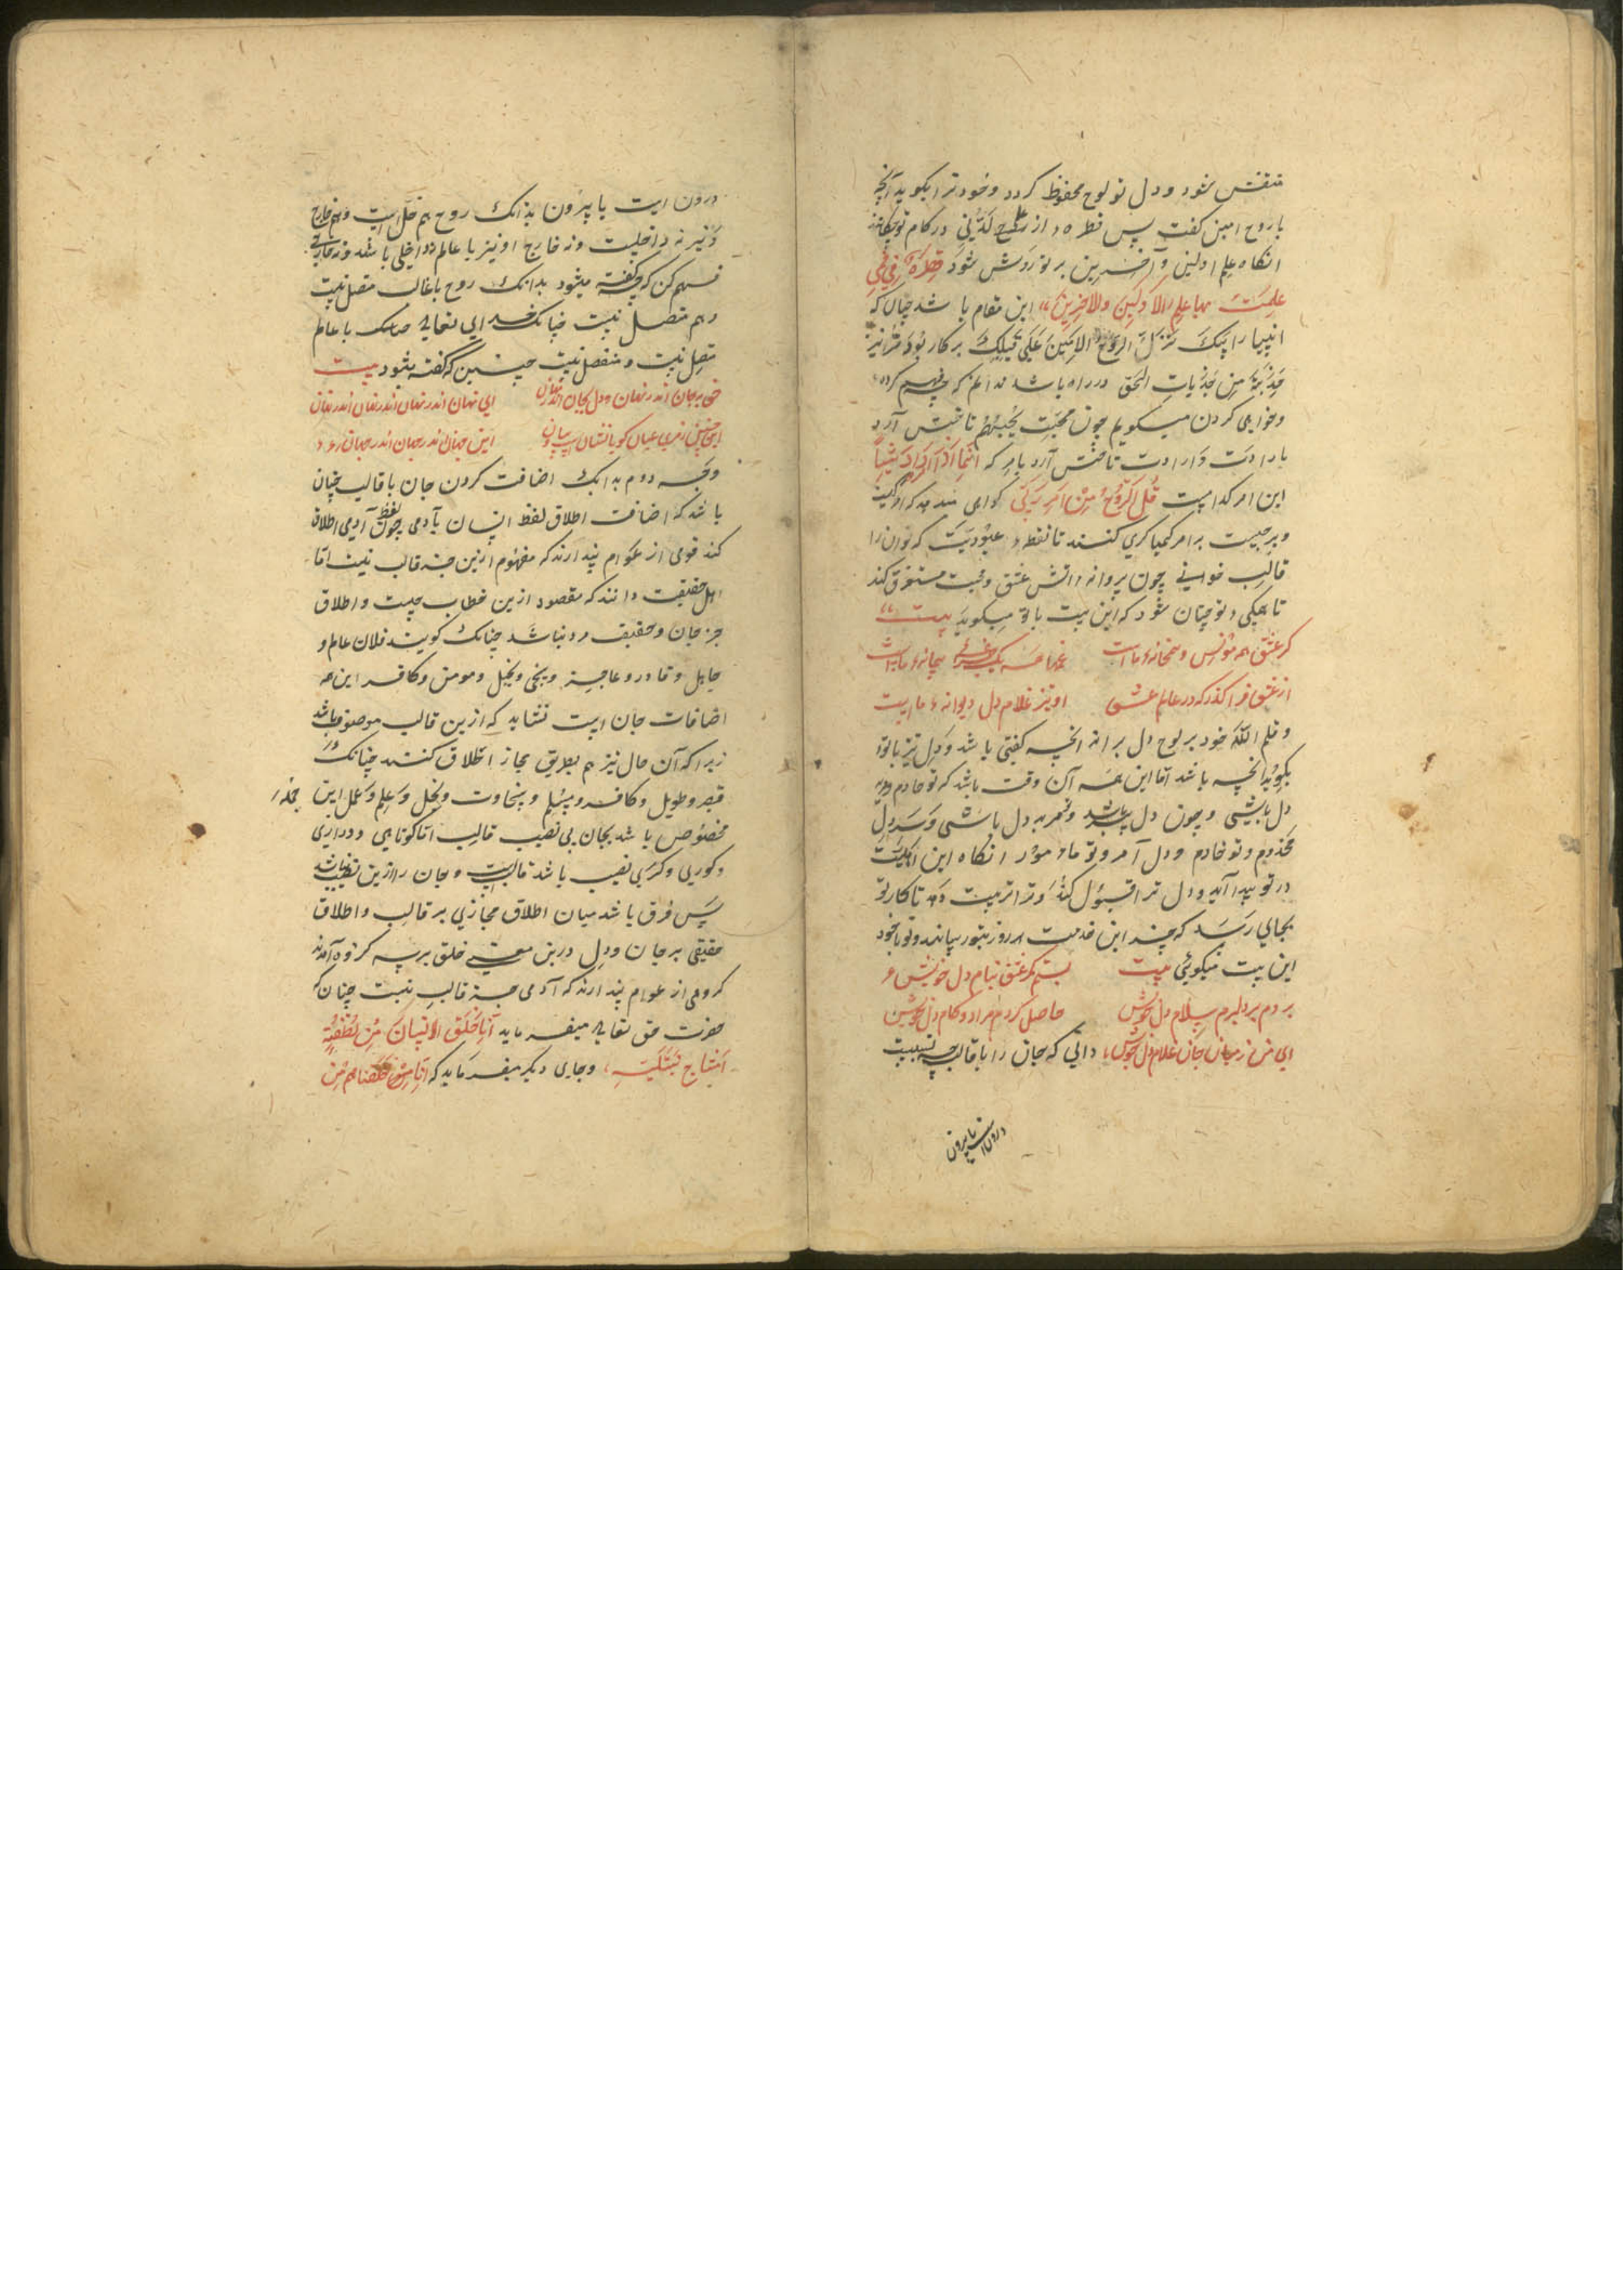 منقش شود و دل تو لوح محفوظ کردد و خود ترا بکوید آنچه
با روح امین کفت پس قطرهٔ از علم لدنی در کام تو چکانند
انکاه علم اولین و آخرین بر تو روشن شود قطرة فی فمی
علمت بها علم الاولین والاخرین این مقام باشد چنان که
انبیا را پیک نزل الروح الامین علی قلبک بر کار بود ترا نیز
جذبة من جذبات الحق در راه باشد ندانم که چه فهم کرده
و خواهی کردن میکویم چون محبت یحبهم تاختن آرد
بارادت و ارادت تاختن آرد بامر که انما امره اذا اراد شیئا
این امر کدامست قل الروح من امر ربی کواهی میدهد که
و برجیست بر امر کیمیا کری کنند تا نقطهٔ عبودیت که توان را
قالب خوانی چون پروانه در آتش عشق و محبت مستغرق کند
تا همکی تو چنان شود که این بیت با تو میکوید بیت
کر عشق همه مونس و همخانهٔ ماست
از عشق فرا کذر که در عالم عشق او نیز غلام دل دیوانهٔ ماست
و قلم الله خود بر لوح دل براند انچه کفتی باشد و دل نیز با تو
بکوید انچه باشد اما این همه آن وقت باشد که تو خادم و مرید
دل باشی و چون دل پیر باشد و تو مرید دل باشی و دل
مخدوم و تو خادم و دل آمر و تو مامور انکاه این اهلیت
در تو پیدا آید و دل ترا قبول کند و ترا تربیت دهد تا کار تو
بجایی رسد که چند این خدمت هر روز بتو رساند و تو با خود
این بیت میکوئی بیت بستم کمر عشق بنام دل خویش
بردم بر دلبرم سلام دل خویش حاصل کردم مراد و کام دل خویش
ای من ز میان جان غلام دل خویش دانی که جان را با قالب چه نسبیت
درونست یا بیرون
درون است یا بیرون بدانک روح هم داخل است و هم خارج
و نیز نه داخلست و نه خارج او نیز با عالم داخلی باشد و نه خارجی
فهم کن که چه کفته میشود بدانک روح با قالب متصل نیست
و هم منفصل نیست چنانک خدای تعالی با عالم
متصل نیست و منفصل نیست چنین که کفته شود بیت
حق بجان اندر نهان و دل بجان اندر نهان ای نهان اندر نهان اندر نهان اندر نهان
این چنین رمزی عیان کو با نشان این جهان اندر جهان اندر جهان
وجه دوم بدانک اضافت کردن جان با قالب چنان
باشد که اضافت اطلاق لفظ انسان بآدمی چون لفظ آدمی اطلاق
کند قومی از عوام پندارند که مفهوم ازین جز قالب نیست اما
اهل حقیقت دانند که مقصود ازین خطاب چیست و اطلاق
جز جان و حقیقت مرد نباشد چنانک کویند فلان عالم و
جاهل و قادر و عاجز و سخی و بخیل و مومن و کافر این همه
اضافات جان است نشاید که ازین قالب موصوف باشد
زیرا که آن حال نیز هم بطریق مجاز اطلاق کنند چنانک
قصیر و طویل و کافر و مسلم و سخاوت و بخل و علم و عمل این جمله
مخصوص باشد بجان بی نصیب قالب اما کوتاهی و درازی
و کوری و کری نصیب باشد قالب است و جان را ازین نصیب نباشد
پس فرق باشد میان اطلاق مجازی بر قالب و اطلاق
حقیقی بر جان و دل درین معنی خلق بر سه کروه آمدند
کروهی از عوام پندارند که آدمی جز قالب نیست چنان که
حضرت حق تعالی میفرماید انا خلقنا الانسان من نطفة
امشاج نبتلیه و جای دیکر میفرماید که انا خلقناهم من